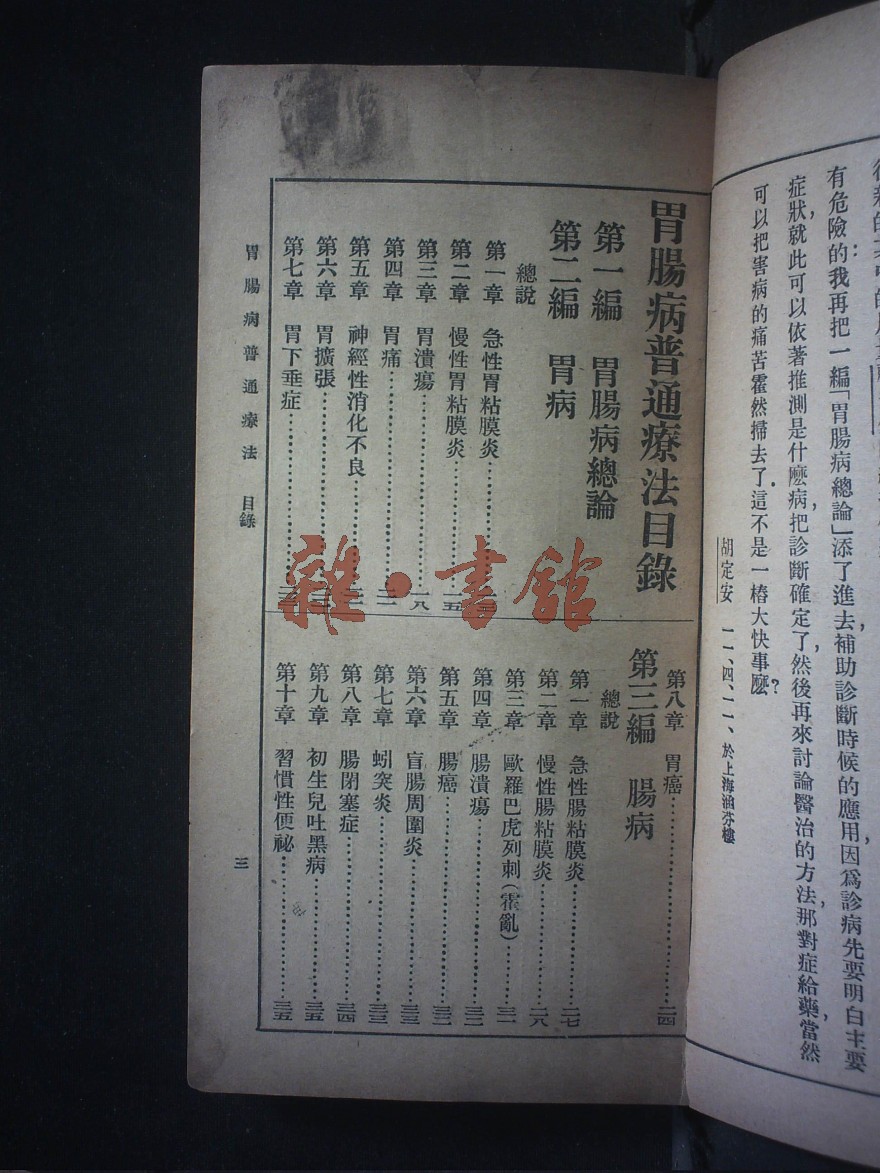 有危險的我再把一編「胃腸病總論」添了進去,補助診斷時候的應用,因爲診病先要明白主要
症狀,就此可以依著推測是什麽病,把診斷確定了,然後再來討論醫治的方法,那對症給藥,當然
可以把害病的痛苦霍然掃去了.這不是一樁大快事麽?
胡定安 一一、四、一一、於上海涵芬樓
胃腸病普通療法目錄
第一編 胃腸病總論
第二編 胃病
總說
第一章 急性胃粘膜炎
第二章 慢性胃粘膜炎……一五
第三章 胃潰瘍……一八
第四章 胃痛……二一
第五章 神經性消化不良
第六章 胃擴張
第七章 胃下垂症
第八章 胃癌……二四
第三編 腸病
總說
第一章 急性腸粘膜炎……二七
第二章 慢性腸粘膜炎……二八
第三章 歐羅巴虎列刺(霍亂)……三一
第四章 腸潰瘍……三二
第五章 腸癌……三二
第六章 盲腸周圍炎……三三
第七章 蚓突炎……三三
第八章 腸閉塞症……三四
第九章 初生兒吐黑病……三五
第十章 習慣性便祕……三五
胃腸病普通療法 目錄
三
雜·書館